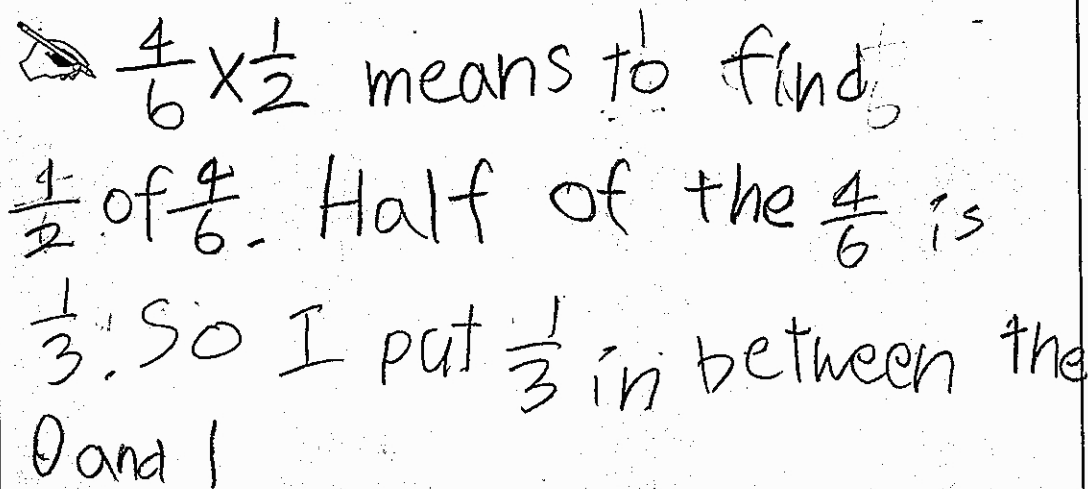 4/6 x 1/2 means to find
1/2 of 4/6. Half of the 4/6 is
1/3. So I put 1/3 in between the
0 and 1